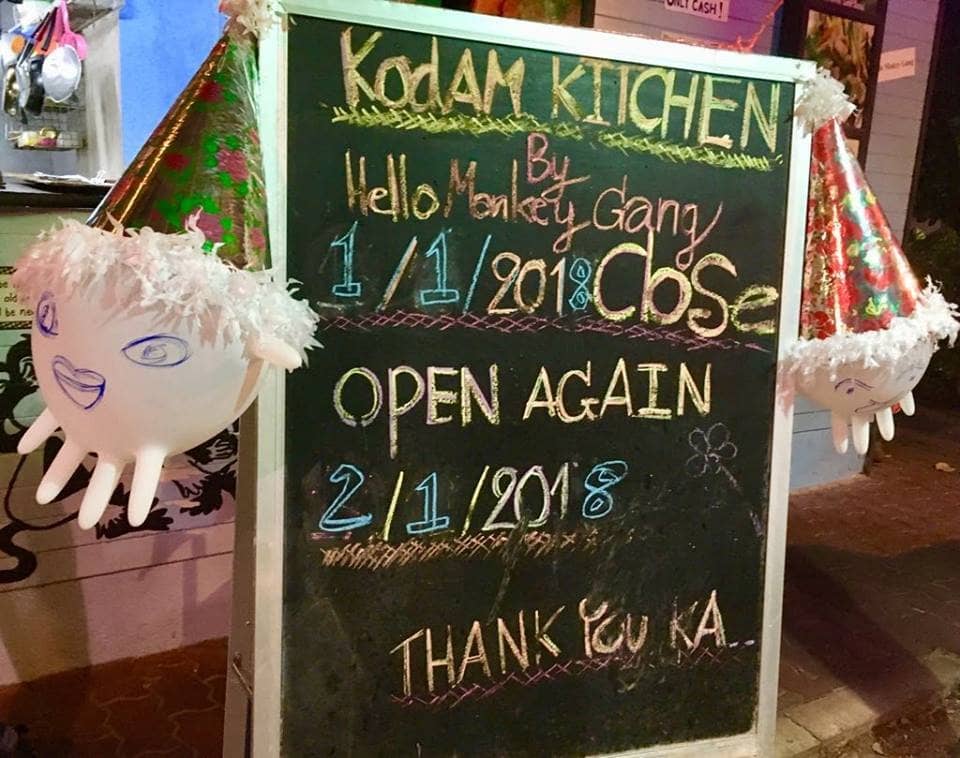 ONLY CASH!
KodAM KITCHEN
By
Hello Monkey Gang
1/1/2018 Close
OPEN AGAIN
2/1/2018
THANK YOU KA...